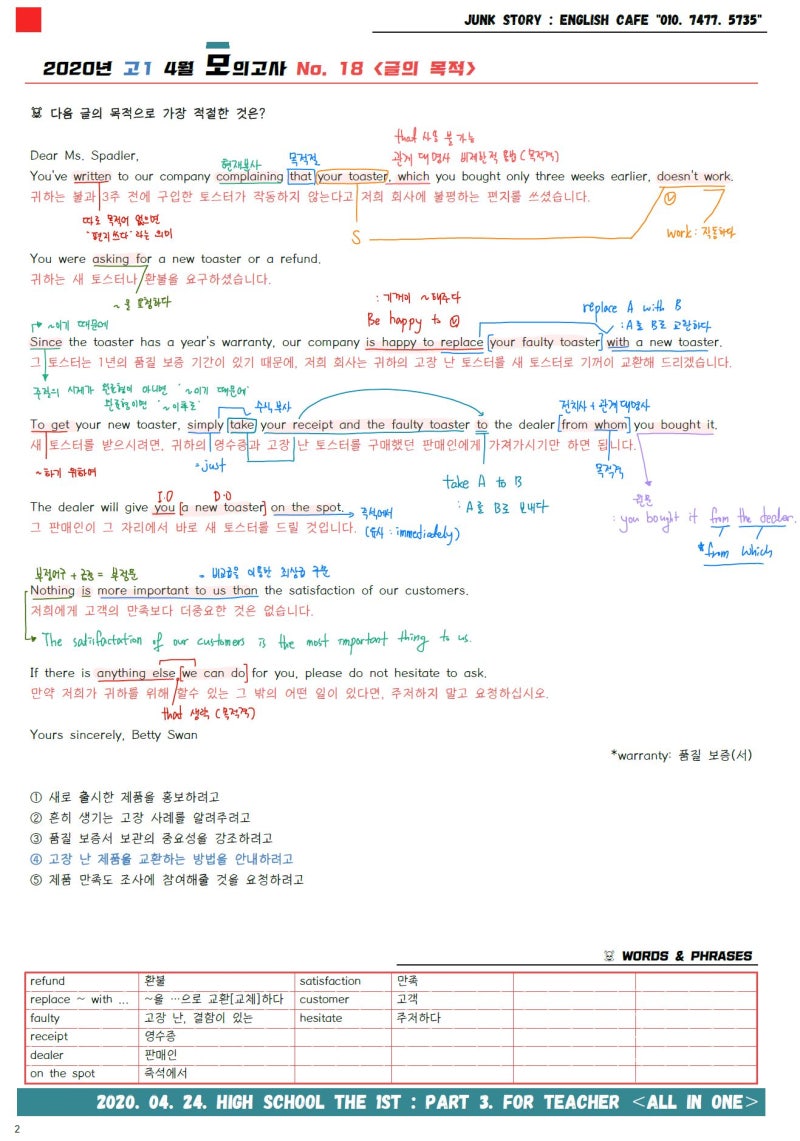 JUNK STORY : ENGLISH CAFE "010. 7477. 5735"
2020년 고1 4월 모의고사 No. 18 <글의 목적>
다음 글의 목적으로 가장 적절한 것은?
that 사용 불가능
관계대명사 비제한적 용법 (목적격)
현재분사
목적절
Dear Ms. Spadler,
You've written to our company complaining that your toaster, which you bought only three weeks earlier, doesn't work.
귀하는 불과 3주 전에 구입한 토스터가 작동하지 않는다고 저희 회사에 불평하는 편지를 쓰셨습니다.
따로 목적어 없으면
"편지쓰다" 라는 의미
S
V
work : 작동하다
You were asking for a new toaster or a refund.
귀하는 새 토스터나 환불을 요구하셨습니다.
~을 요청하다
: 기꺼이 ~해주다
Be happy to V
replace A with B
: A를 B로 교환하다
~이기 때문에
Since the toaster has a year's warranty, our company is happy to replace [your faulty toaster] with a new toaster.
그 토스터는 1년의 품질 보증 기간이 있기 때문에, 저희 회사는 귀하의 고장 난 토스터를 새 토스터로 기꺼이 교환해 드리겠습니다.
주절의 시제가 완료형이 아니면 '~이기 때문에'
완료형이면 '~이후로'
수식부사
전치사 + 관계대명사
To get your new toaster, simply take your receipt and the faulty toaster to the dealer [from whom] you bought it.
새 토스터를 받으시려면, 귀하의 영수증과 고장 난 토스터를 구매했던 판매인에게 가져가시기만 하면 됩니다.
~하기 위하여
= just
take A to B
: A를 B로 보내다
목적격
원문
: you bought it from the dealer.
* from which
I.O
D.O
The dealer will give you [a new toaster] on the spot.
그 판매인이 그 자리에서 바로 새 토스터를 드릴 것입니다.
즉석에서
(동사 : immediately)
부정어구 + 긍정 = 부정문
= 비교급을 이용한 최상급 구문
Nothing is more important to us than the satisfaction of our customers.
저희에게 고객의 만족보다 더중요한 것은 없습니다.
The satisfactation of our customers is the most important thing to us.
If there is anything else [we can do] for you, please do not hesitate to ask.
만약 저희가 귀하를 위해 할수 있는 그 밖의 어떤 일이 있다면, 주저하지 말고 요청하십시오.
that 생략 (목적격)
Yours sincerely, Betty Swan
*warranty: 품질 보증(서)
① 새로 출시한 제품을 홍보하려고
② 흔히 생기는 고장 사례를 알려주려고
③ 품질 보증서 보관의 중요성을 강조하려고
④ 고장 난 제품을 교환하는 방법을 안내하려고
⑤ 제품 만족도 조사에 참여해줄 것을 요청하려고
WORDS & PHRASES
refund 환불 satisfaction 만족
replace ~ with ... ~을 …으로 교환[교체]하다 customer 고객
faulty 고장 난, 결함이 있는 hesitate 주저하다
receipt 영수증
dealer 판매인
on the spot 즉석에서
2020. 04. 24. HIGH SCHOOL THE 1ST : PART 3. FOR TEACHER <ALL IN ONE>
2